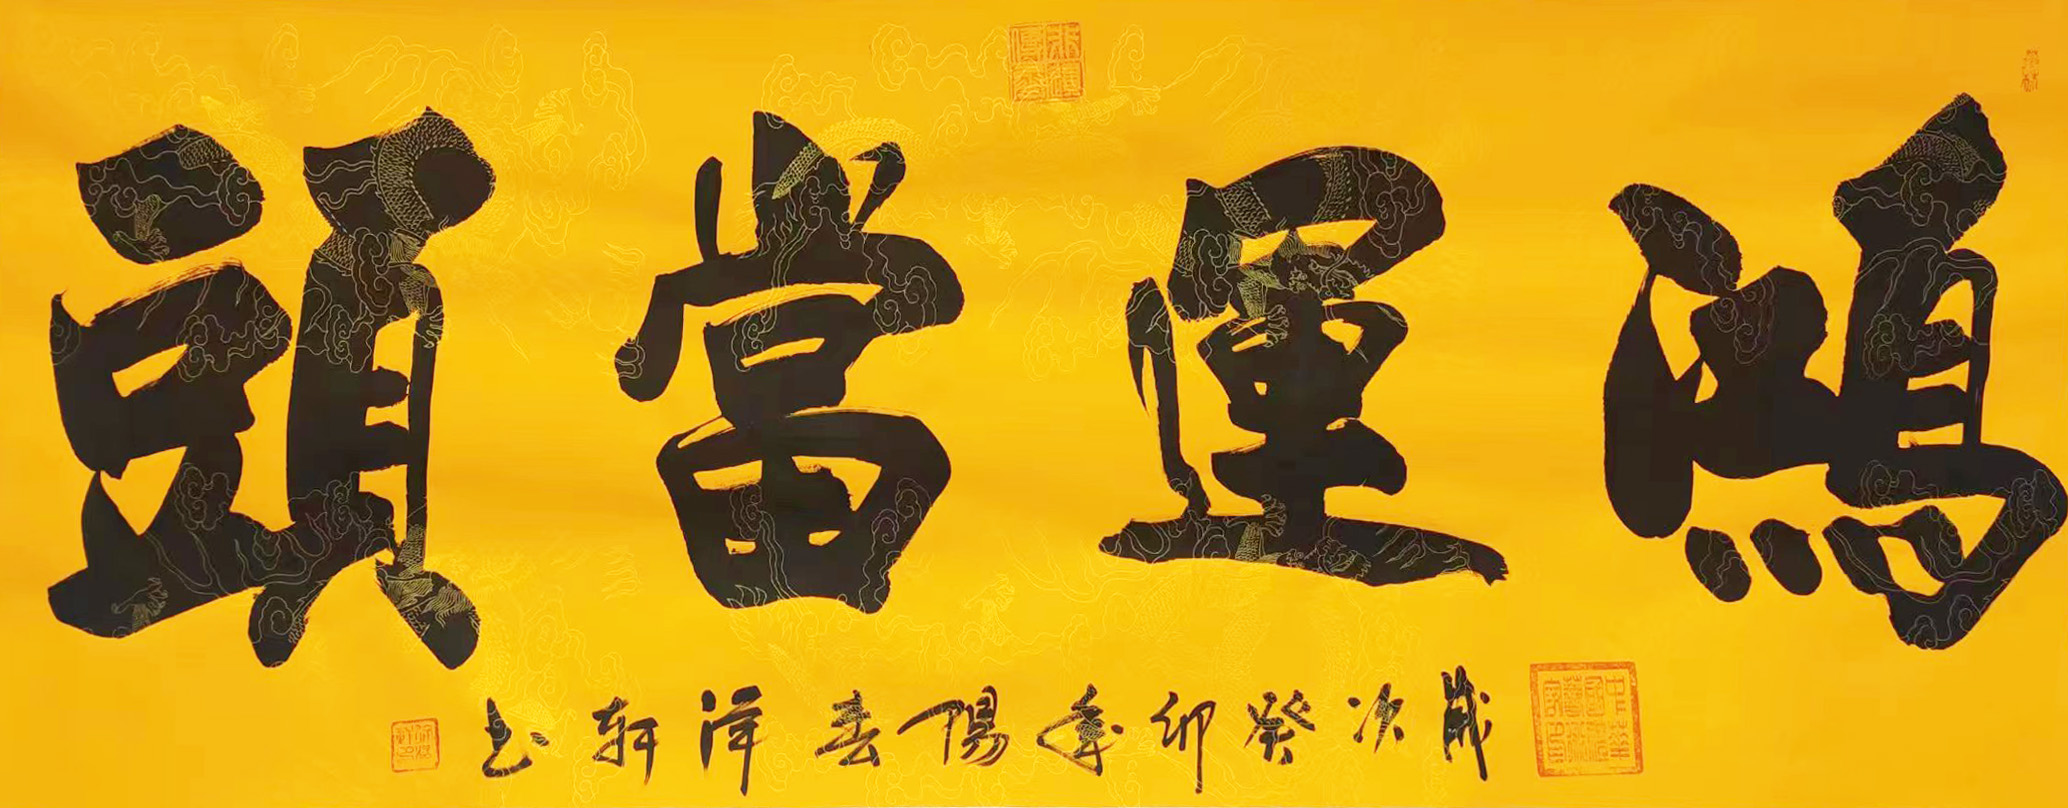 鴻運當頭
歲次癸卯年陽春澤軒書